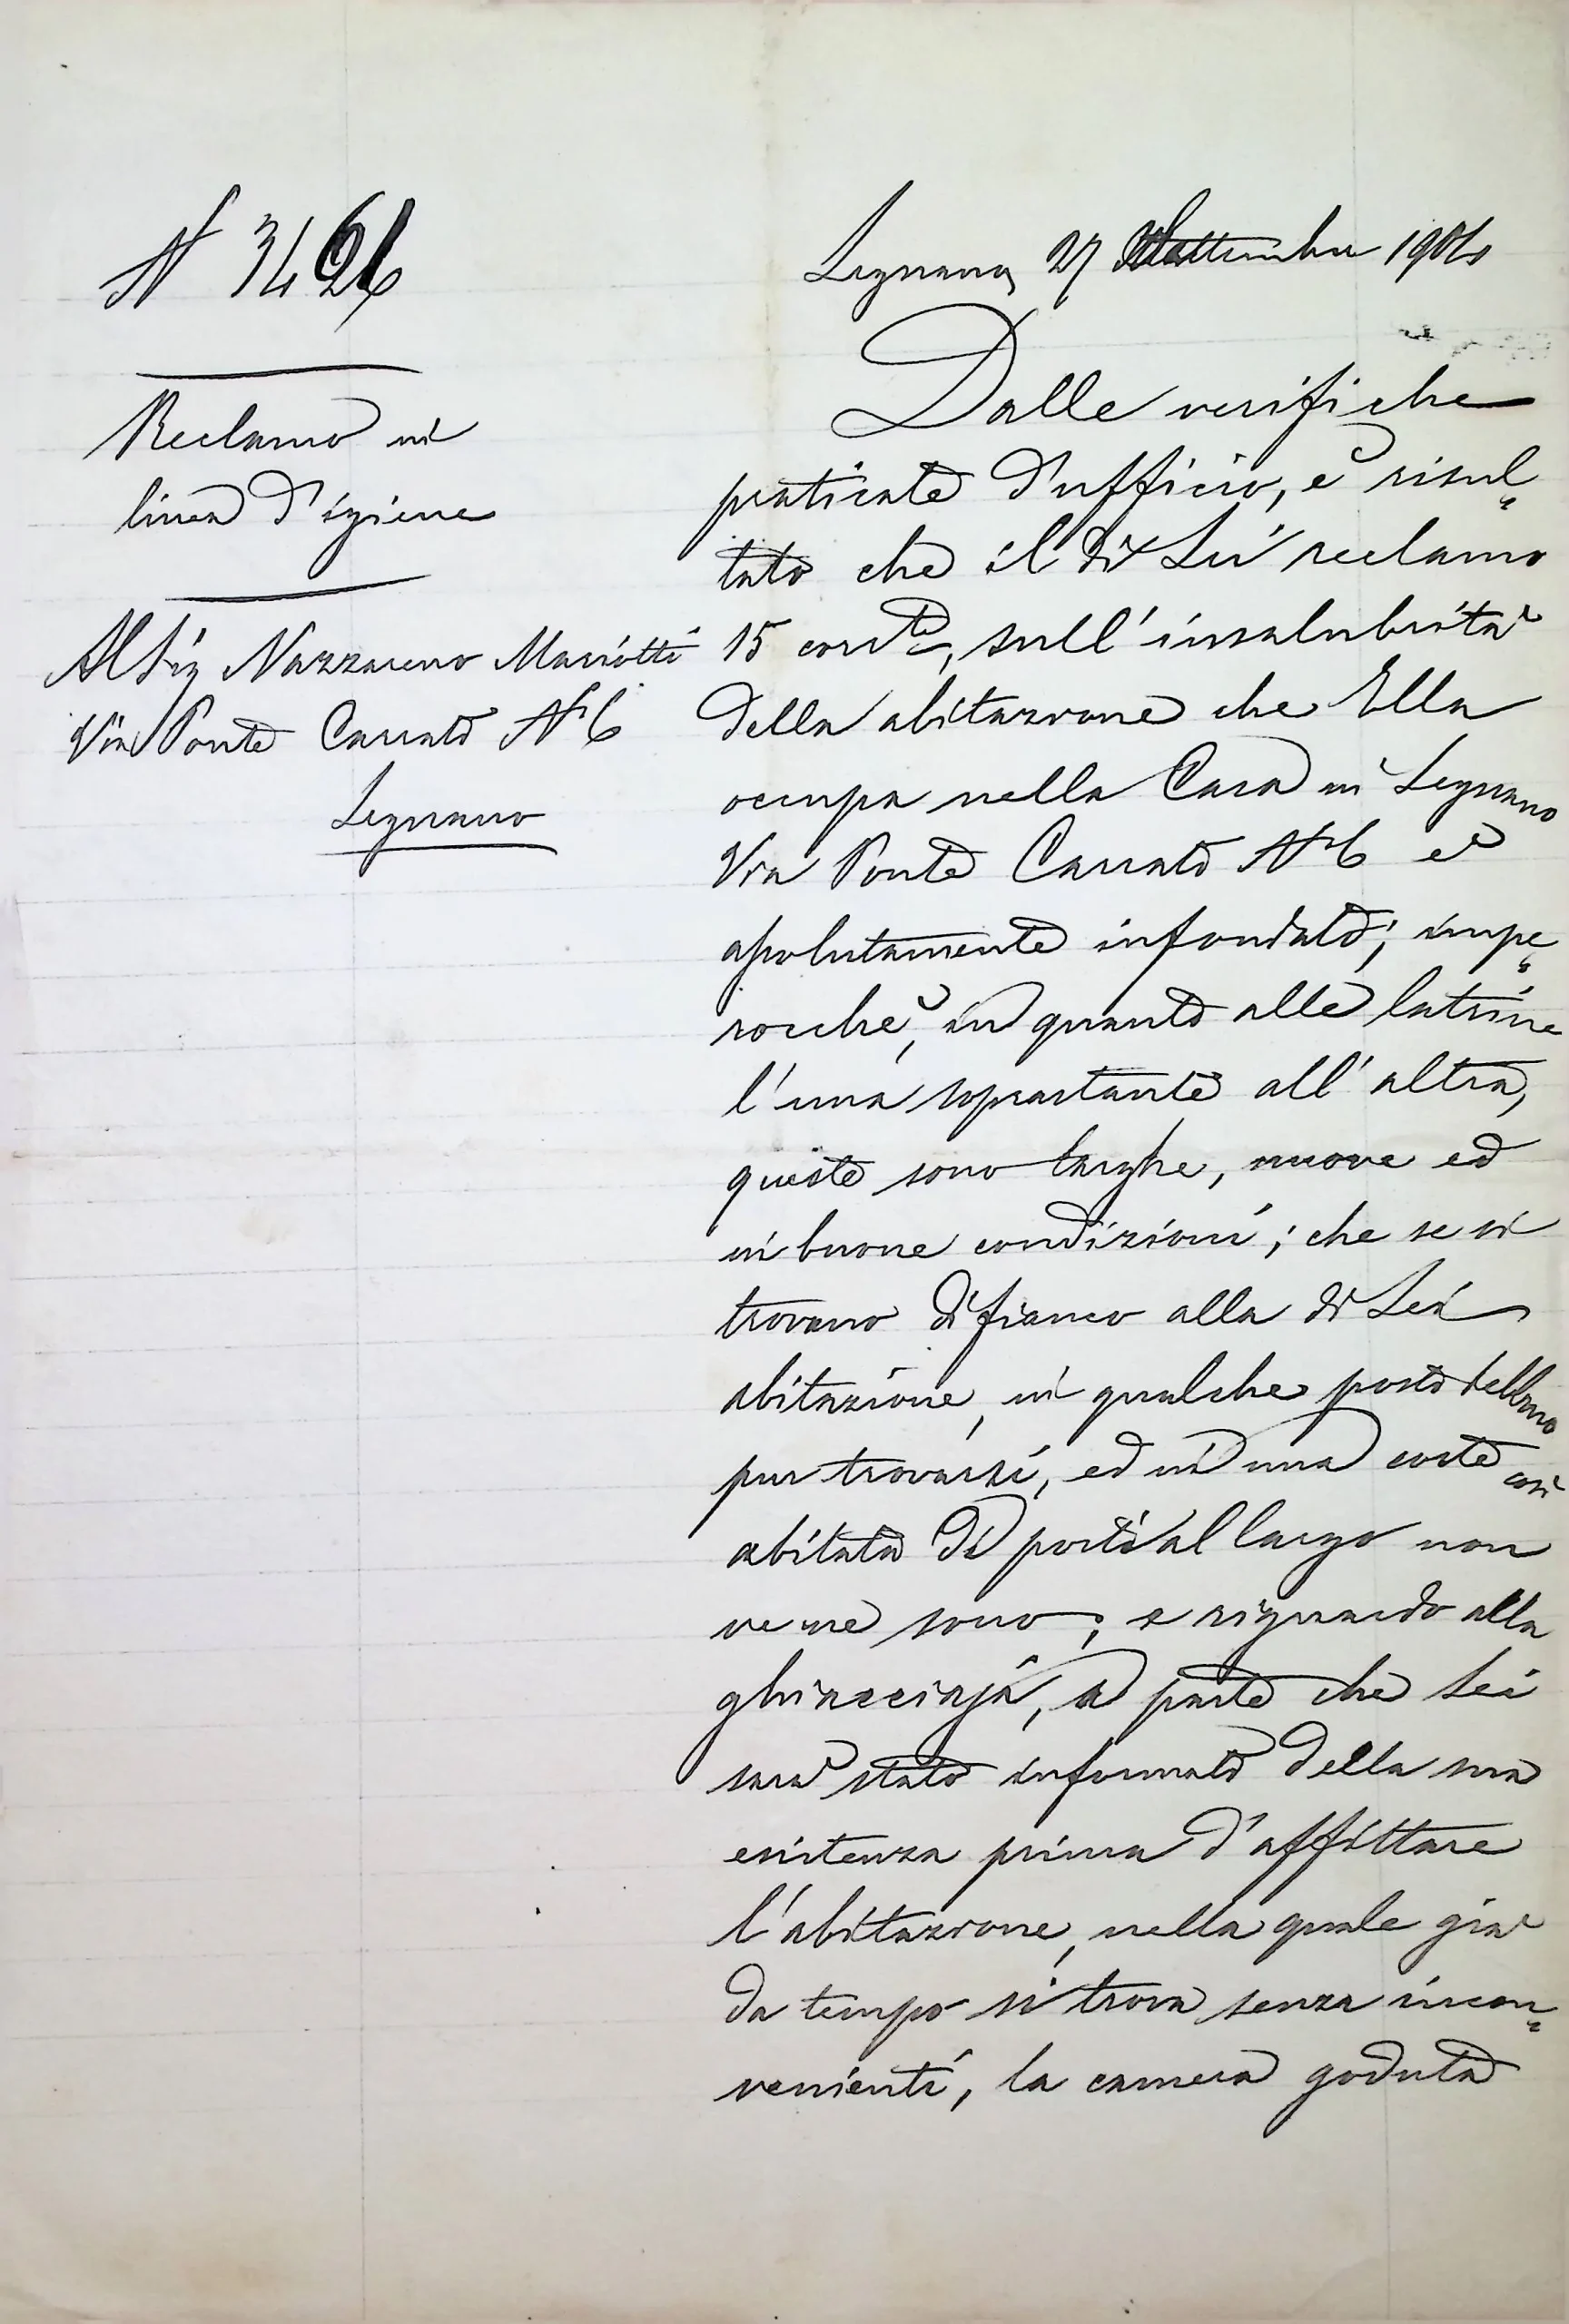 N 3461
Reclamo in
linea d'igiene
Al Sig Nazzareno Mariotti
Via Ponte Carrato N° 6
Legnano
Legnano, 27 Settembre 1904
Dalle verifiche
praticate d'ufficio, è risul„
tato che il di Lei reclamo
15 corr.te, sull'insalubrità
della abitazione che Ella
occupa nella Casa in Legnano
Via Ponte Carrato N° 6 è
assolutamente infondato; impe„
rocchè, in quanto alle latrine
l'una soprastante all'altra,
queste sono larghe, nuove ed
in buone condizioni; che se si
trovano di fianco alla di Lei
abitazione, in qualche posto debbono
pur trovarsi, ed in una corte così
abitata di posti al largo non
ve ne sono; e riguardo alla
ghiacciaja, a parte che Lei
sarà stato informato della sua
esistenza prima d'affittare
l'abitazione, nella quale già
da tempo si trova senza incon„
venienti, la camera goduta